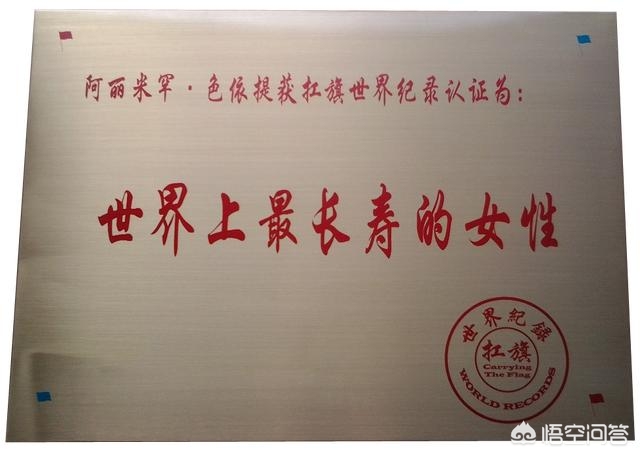 阿丽米罕·色依提获扛旗世界纪录认证为：
世界上最长寿的女性
世界紀錄
扛旗
Carrying
The Flag
WORLD RECORDS
悟空问答